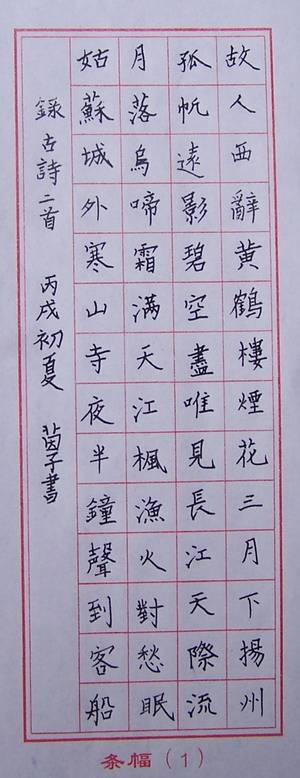 故人西辭黃鶴樓煙花三月下揚州
孤帆遠影碧空盡唯見長江天際流
月落烏啼霜滿天江楓漁火對愁眠
姑蘇城外寒山寺夜半鐘聲到客船
錄古詩二首 丙戌初夏 茵子書
条幅（1）